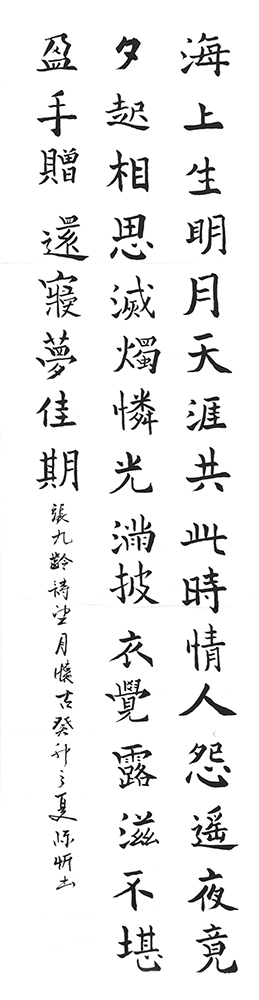 海上生明月天涯共此時情人怨遥夜竟
夕起相思滅燭憐光滿披衣覺露滋不堪
盈手贈還寢夢佳期
張九齡詩望月懷古癸卯之夏